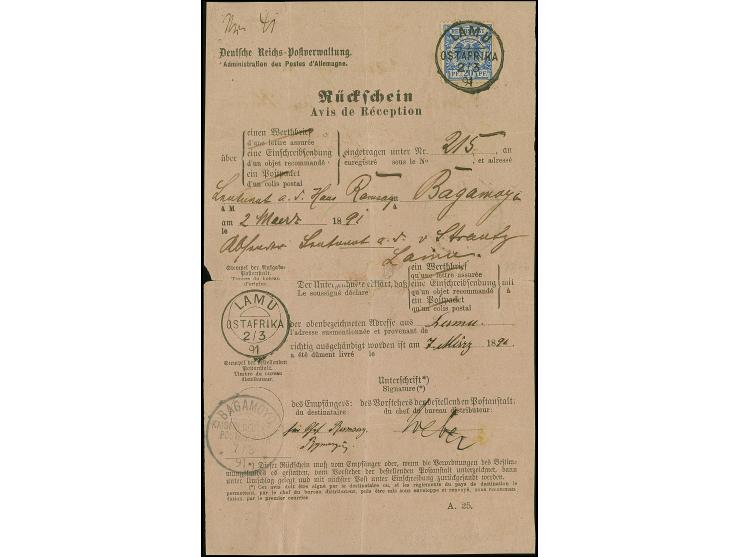 Deutsche Reichs-Postverwaltung.
Administration des Postes d'Allemagne.
LAMU
OSTAFRIKA
2/3
91
Rückschein
Avis de Réception
über
einen Werthbrief
d'une lettre assurée
eine Einschreibsendung
d'un objet recommandé
ein Postpacket
d'un colis postal
eingetragen unter Nr. 215. an
enregistré sous le No et adressé
Leutenant a. d. Hans Ramsay Bagamoyo
à M à
am 2 Maerz 1891
le
Absender Leutenant a. d. v Strantz
Lamu.
Stempel der Aufgabe-
Postanstalt.
Timbre du bureau
d'origine.
Der Unterzeichnete erklärt, daß
Le soussigné déclare
ein Werthbrief
qu'une lettre assurée
eine Einschreibsendung
qu'un objet recommandé
ein Postpacket
qu'un colis postal
mit
à
LAMU
OSTAFRIKA
2/3
91
der obenbezeichneten Adresse aus Lamu.
l'adresse susmentionnée et provenant de
richtig ausgehändigt worden ist am 7 März 1891
a été dûment livré le
Stempel der bestellenden
Postanstalt.
Timbre du bureau
distributeur.
Unterschrift*)
Signature(*)
des Empfängers: des Vorstehers der bestellenden Postanstalt:
du destinataire: du chef du bureau distributeur:
Weber
BAGAMOYO
7/3
91
*) Dieser Rückschein muß vom Empfänger oder, wenn die Verordnungen des Bestim-
mungslandes es gestatten, vom Vorsteher der bestellenden Postanstalt unterzeichnet, dann
unter Umschlag gelegt und mit nächster Post unter Einschreibung zurückgesandt werden.
(*) Cet avis doit être signé par le destinataire ou, si les règlements du pays de destination le
permettent, par le chef du bureau distributeur, puis être mis sous enveloppe et renvoyé, sous recomman-
dation, par le premier courrier
A. 25.